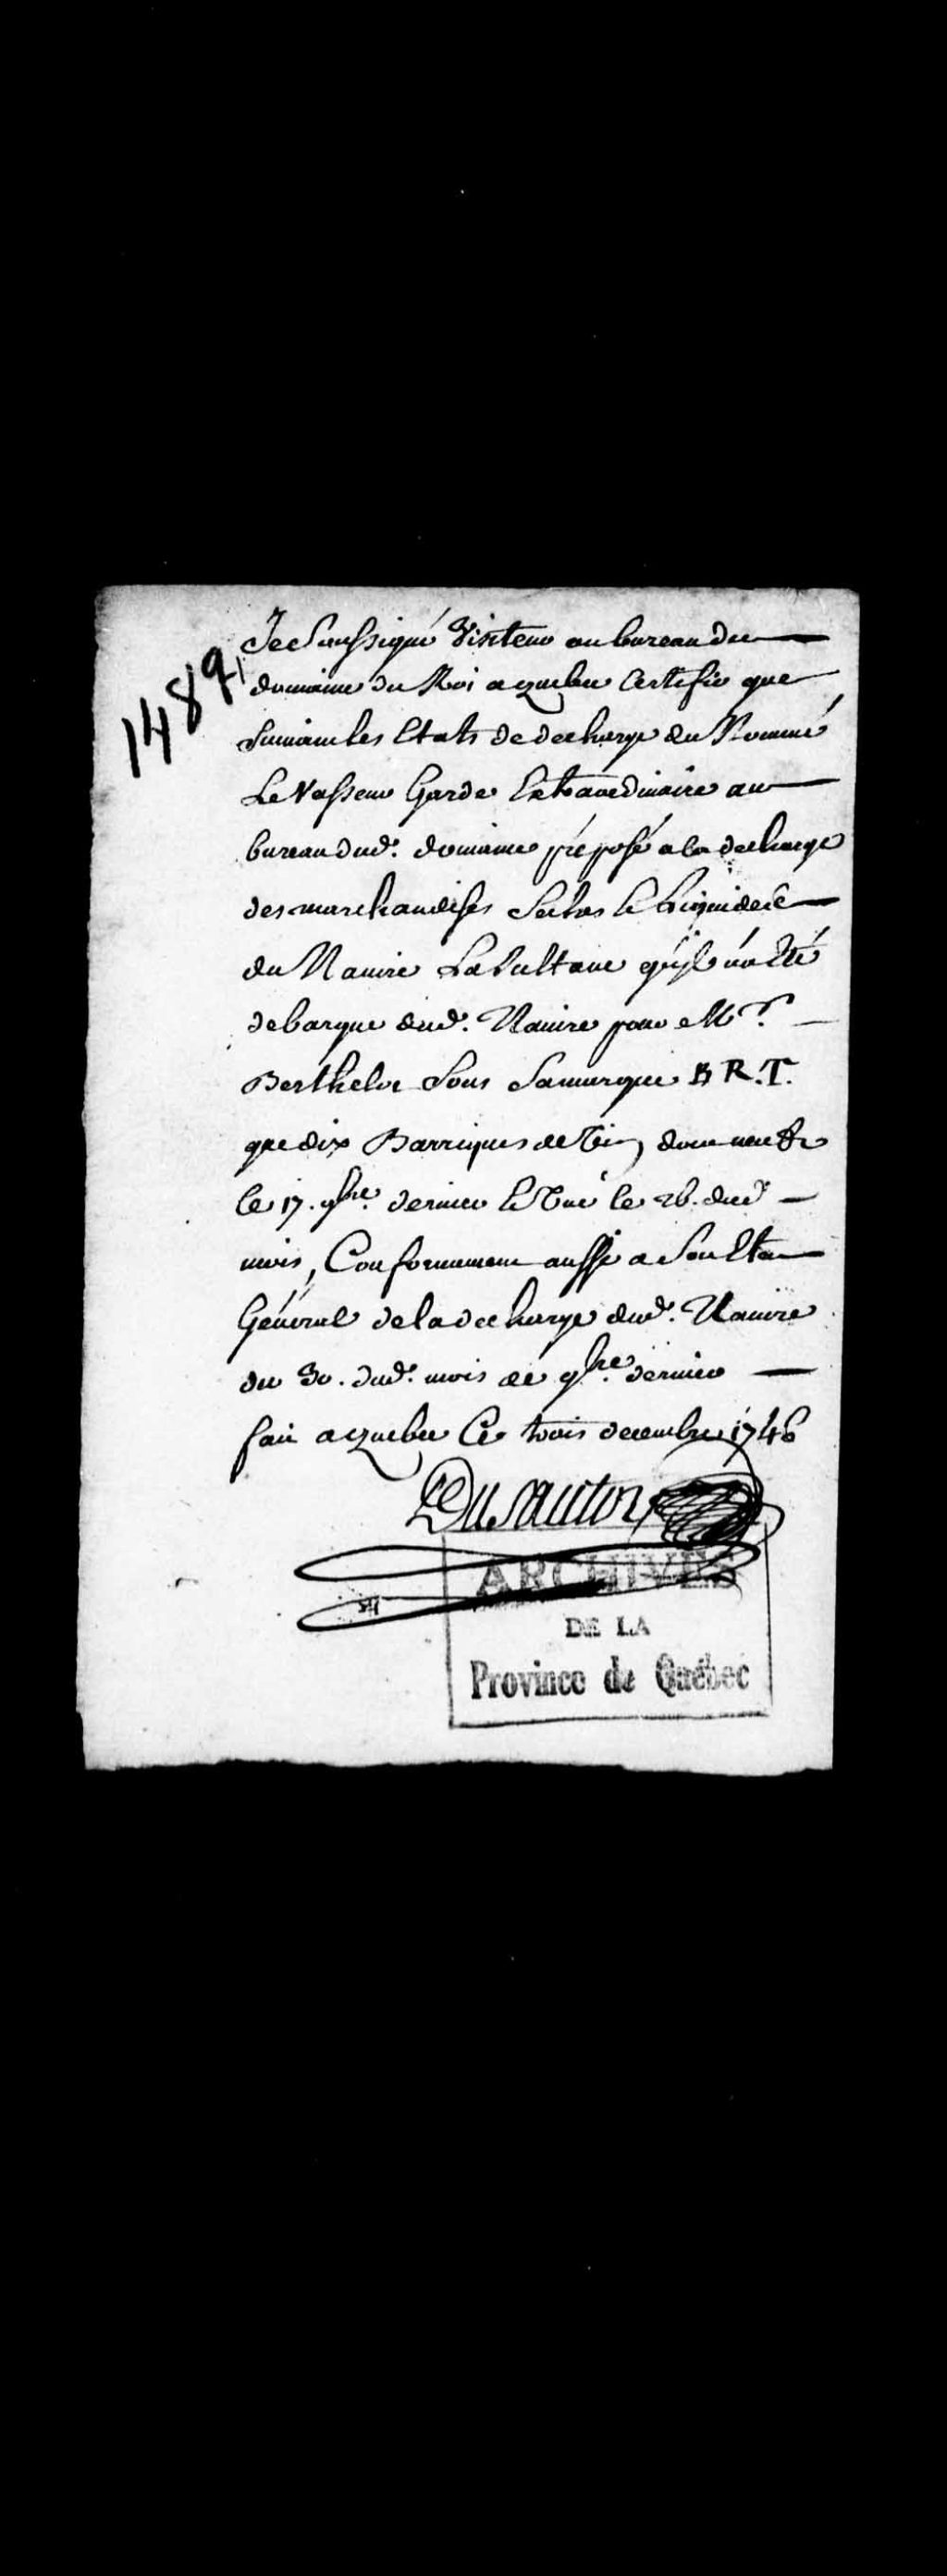 1489
Je Soussigné Visiteur au bureau du
domaine du Roi a quebec Certifie que
Suivant les Etats de decharge du Nommé
Le Vasseur Garde Extraordinaire au
bureau dud. domaine préposé a la decharge
des marchandises Seches et Liquides
du Navire La Sultane qu'jl n'a Eté
debarque dud. Navire pour Mr.
Berthelot Sous Sa marque B R.T.
que dix Barriques de Vin, dont neuf
le 17. 9bre. dernier et Une le 26. dud.
mois, Conformement aussi a Son Etat
Général de la decharge dud. Navire
du 30. dud. mois de 9bre. dernier
fait a quebec Ce trois decembre 1746
Dusautoy
ARCHIVES
DE LA
Province de Québec